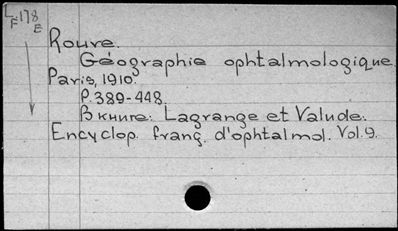 L F 178 E
Roure.
Géographie ophtalmologique
Paris, 1910.
P. 389-448.
В книге: Lagrange et Valude.
Encyclop. franç. d'ophtalmol. Vol. 9.